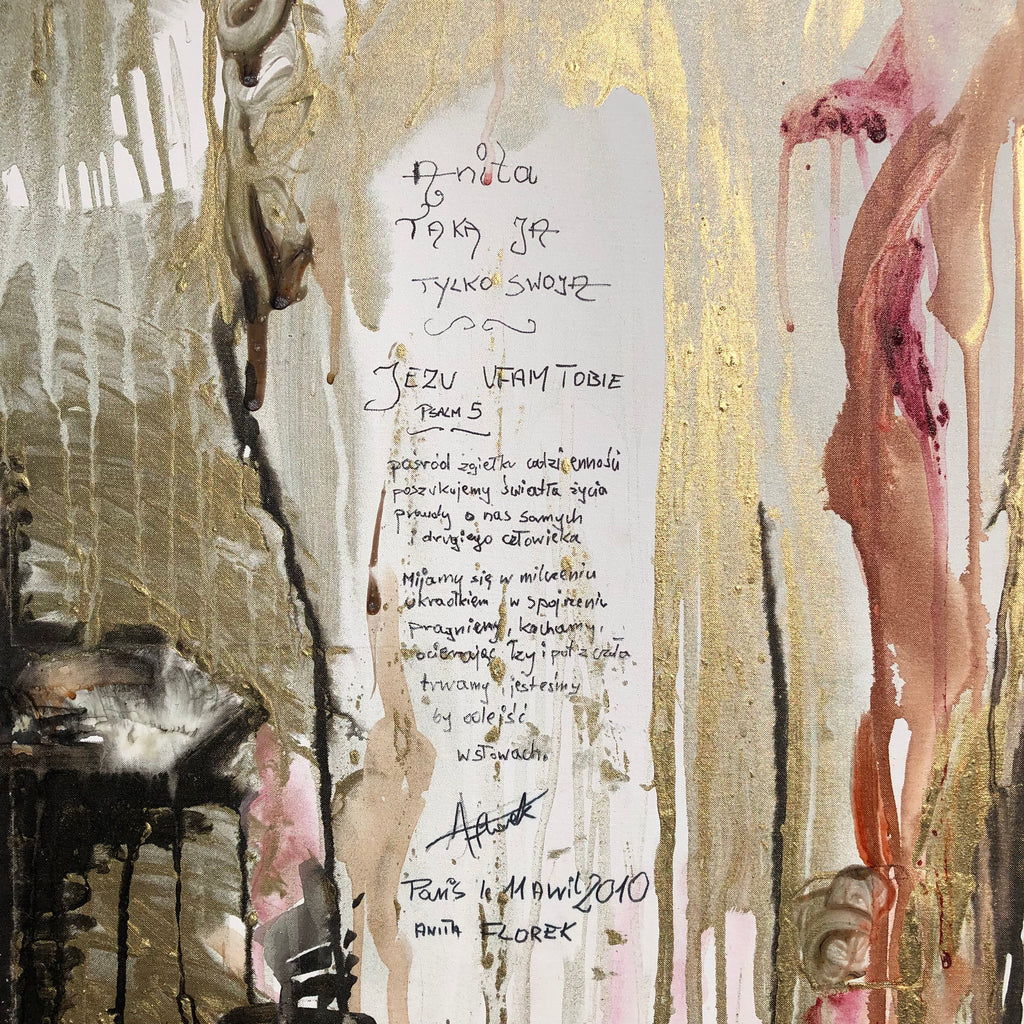 Anita
TAKA JA
TYLKO SWOJA
JEZU UFAM TOBIE
PSALM 5
pośród zgiełku codzienności
poszukujemy światła życia
prawdy o nas samych
i drugiego człowieka
Mijamy się w milczeniu
ukradkiem w spojrzeniu
pragniemy, kochamy,
ocierając łzy i pot z czoła
trwamy i jesteśmy
by odejść
w słowach.
Paris le 11 Avril 2010
ANITA FLOREK